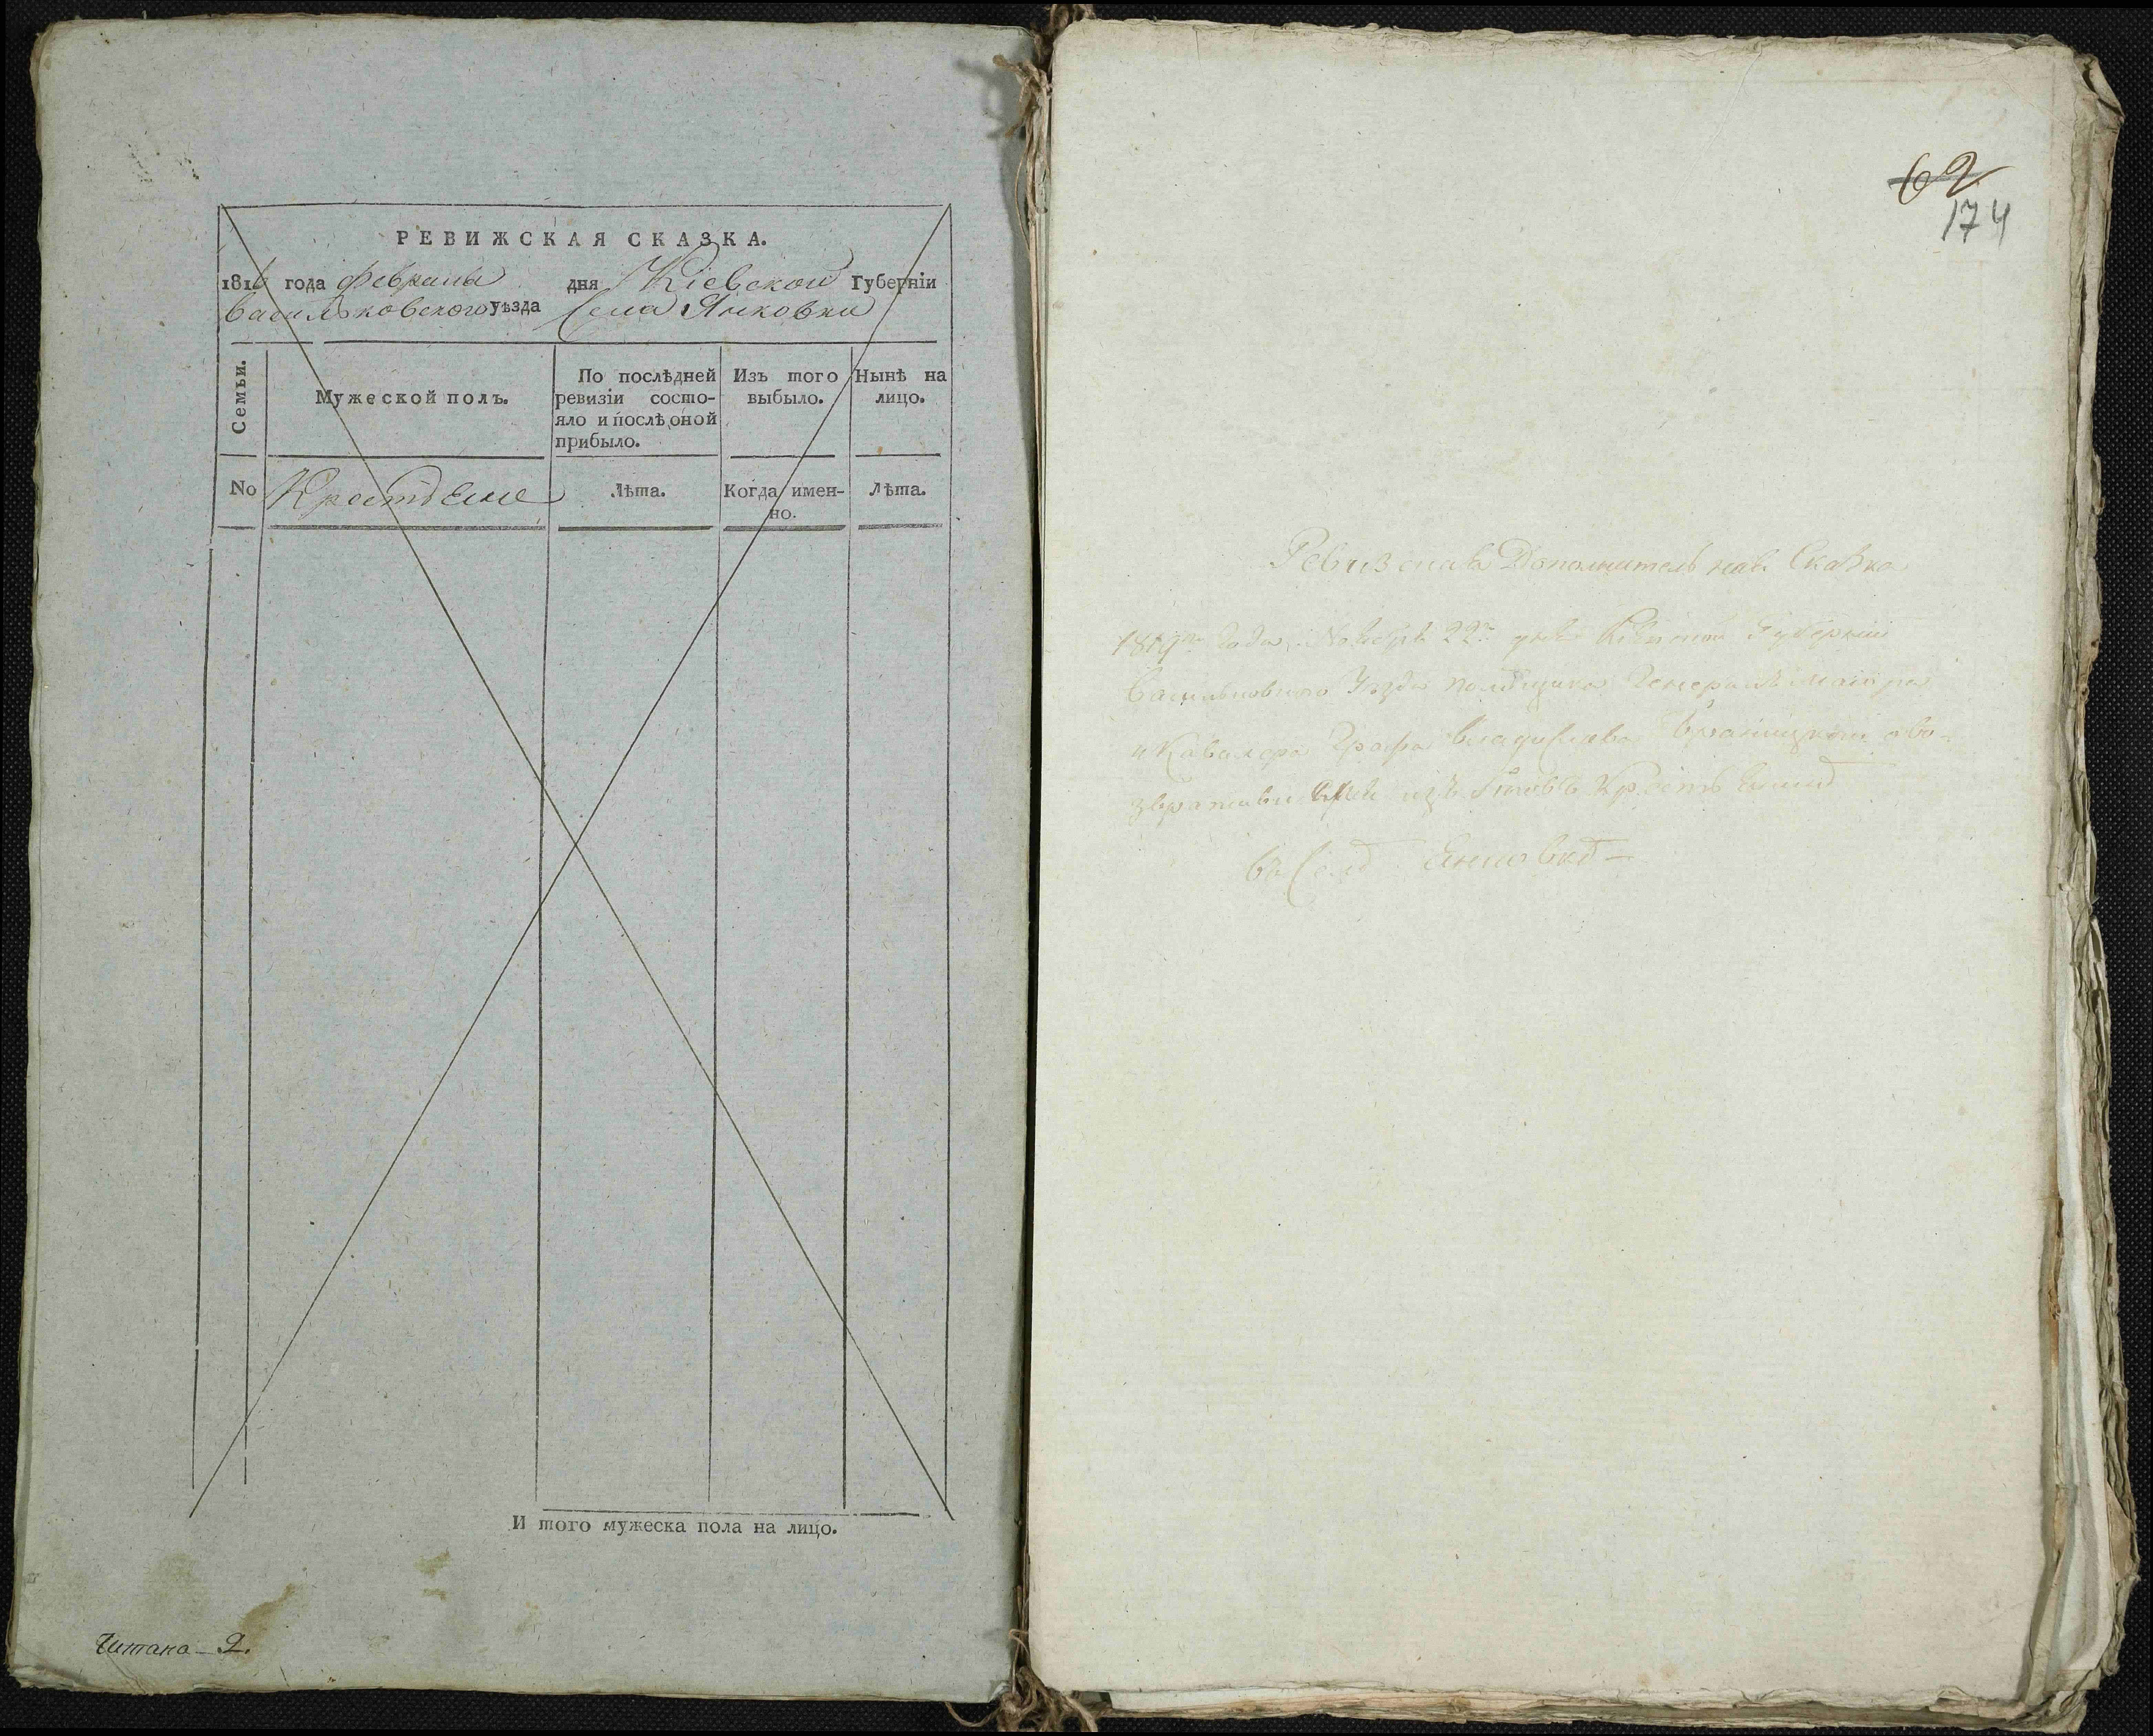 РЕВИЖСКАЯ СКАЗКА.
1816 года февраля дня Кіевской Губерніи
Васильковского уѣзда Села Янковки
Семьи.
Мужеской полъ.
По послѣдней
ревизіи состо-
яло и послѣ оной
прибыло.
Изъ того
выбыло.
Нынѣ на
лицо.
No
Крестьяне
Лѣта.
Когда имен-
но.
Лѣта.
И того мужеска пола на лицо.
Читана
62
174
Ревизская Дополнительная Сказка
1819го Года Ноября 22го дня Кіевской Губерніи
Васильковского Уезда помѣщика Генералъ Маіора
и Кавалера Графа Владислава Браницкого о во-
звратившихся изъ бѣговъ Крестьянъ
въ Селѣ Янковкѣ